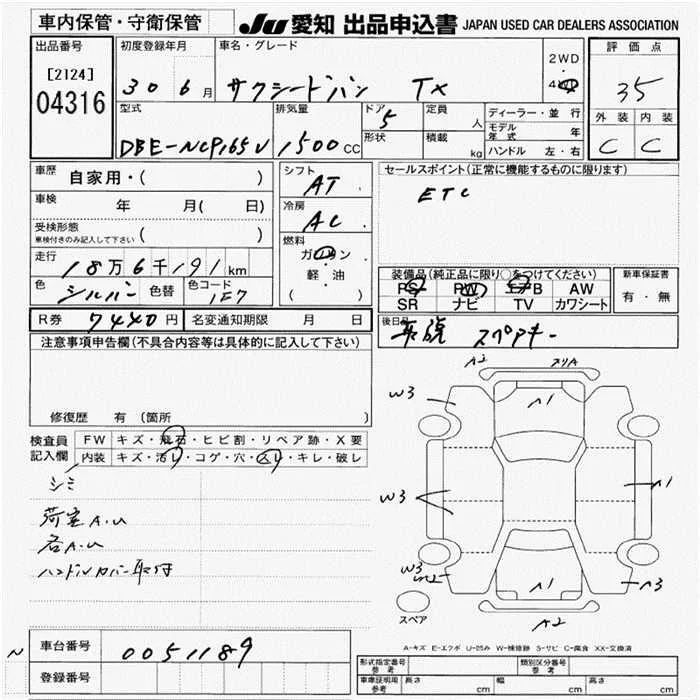 車内保管・守衛保管
JU 愛知 出品申込書 JAPAN USED CAR DEALERS ASSOCIATION
出品番号
[2124]
04316
初度登録年月
30 6月
車名・グレード
サクシードバン TX
2WD
・
4WD
評価点
35
外装 内装
C C
型式
DBE-NCP165V
排気量
1500CC
ドア
5
形状
定員
人
積載
kg
ディーラー・並行
モデル年式 年
ハンドル 左・右
車歴
自家用・( )
車検
年 月( 日)
受検形態
車検付きのみ記入して下さい ( )
走行
18万6千191km
色
シルバー
色替
色コード
1F7
シフト
AT
冷房
AC
燃料
ガソリン
・
軽・油
( )
セールスポイント(正常に機能するものに限ります)
ETC
装備品(純正品に限り○をつけてください)
PS PW エアB AW
SR ナビ TV カワシート
新車保証書
有・無
R券 7440円
名変通知期限 月 日
後日品
スペアキー
注意事項申告欄(不具合内容等は具体的に記入して下さい)
修復歴 有(箇所 )
検査員記入欄
FW キズ・飛石・ヒビ割・リペア跡・X要
内装 キズ・汚レ・コゲ・穴・スレ・キレ・破レ
シミ
荷室A.U
各A.U
ハンドルカバー取付
A2 スリA
W3 A1
W3 A1
W3 A1 A3
A2
スペア
A-キズ E-エクボ U-凹み W-補修跡 S-サビ C-腐食 XX-交換済
N
車台番号
0051189
登録番号
形式指定番号 参考
類別区分番号 参考
車庫証明用 参考
長さ cm
幅 cm
高さ cm